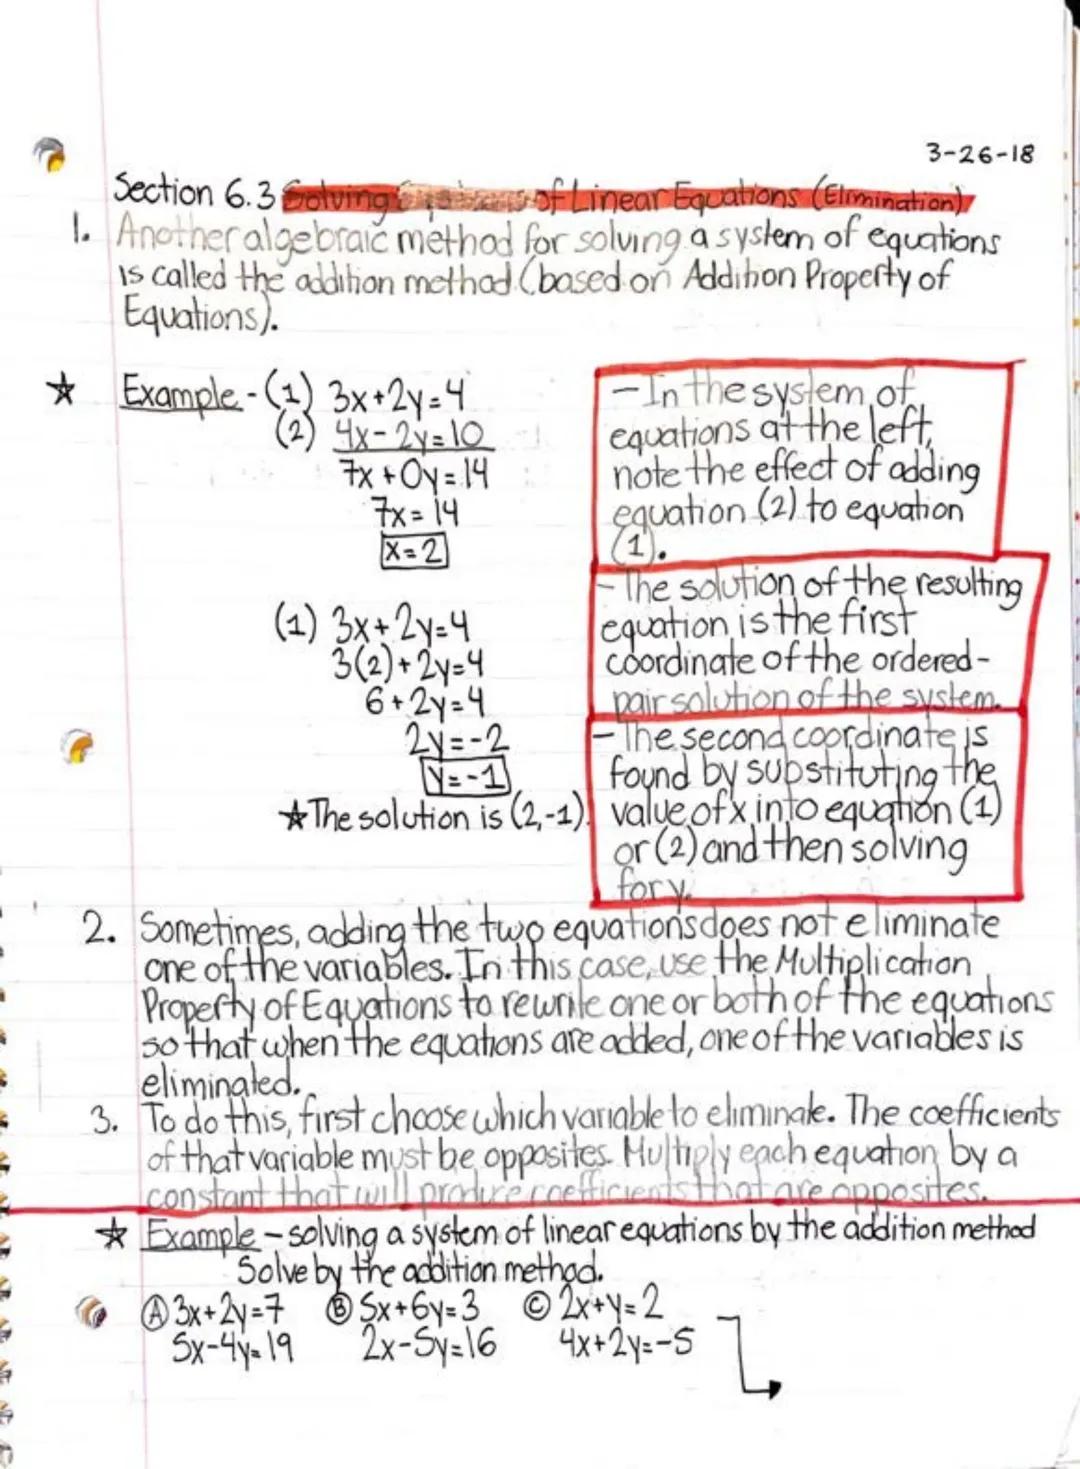 3-26-18
Section 6.3 Solving Systems of Linear Equations (Elimination)
1. Another algebraic method for solving a system of equations
is called the addition method (based on Addition Property of
Equations).
☆ Example - (1) 3x+2y=4
(2) 4x-2y=10
7x+0y=14
7x=14
x=2
-In the system of
equations at the left,
note the effect of adding
equation (2) to equation
(1).
(1) 3x+2y=4
3(2)+2y=4
6+2y=4
2y=-2
y=-1
☆The solution is (2,-1).
-The solution of the resulting
equation is the first
coordinate of the ordered-
pair solution of the system.
-The second coordinate is
found by substituting the
value of x into equation (1)
or (2) and then solving
for y.
2. Sometimes, adding the two equations does not eliminate
one of the variables. In this case, use the Multiplication
Property of Equations to rewrite one or both of the equations
so that when the equations are added, one of the variables is
eliminated.
3. To do this, first choose which variable to eliminate. The coefficients
of that variable must be opposites. Multiply each equation by a
constant that will produce coefficients that are opposites.
☆ Example - solving a system of linear equations by the addition method
Solve by the addition method.
Ⓐ 3x+2y=7 Ⓑ 5x+6y=3 Ⓒ 2x+y=2
5x-4y=19 2x-5y=16 4x+2y=-5